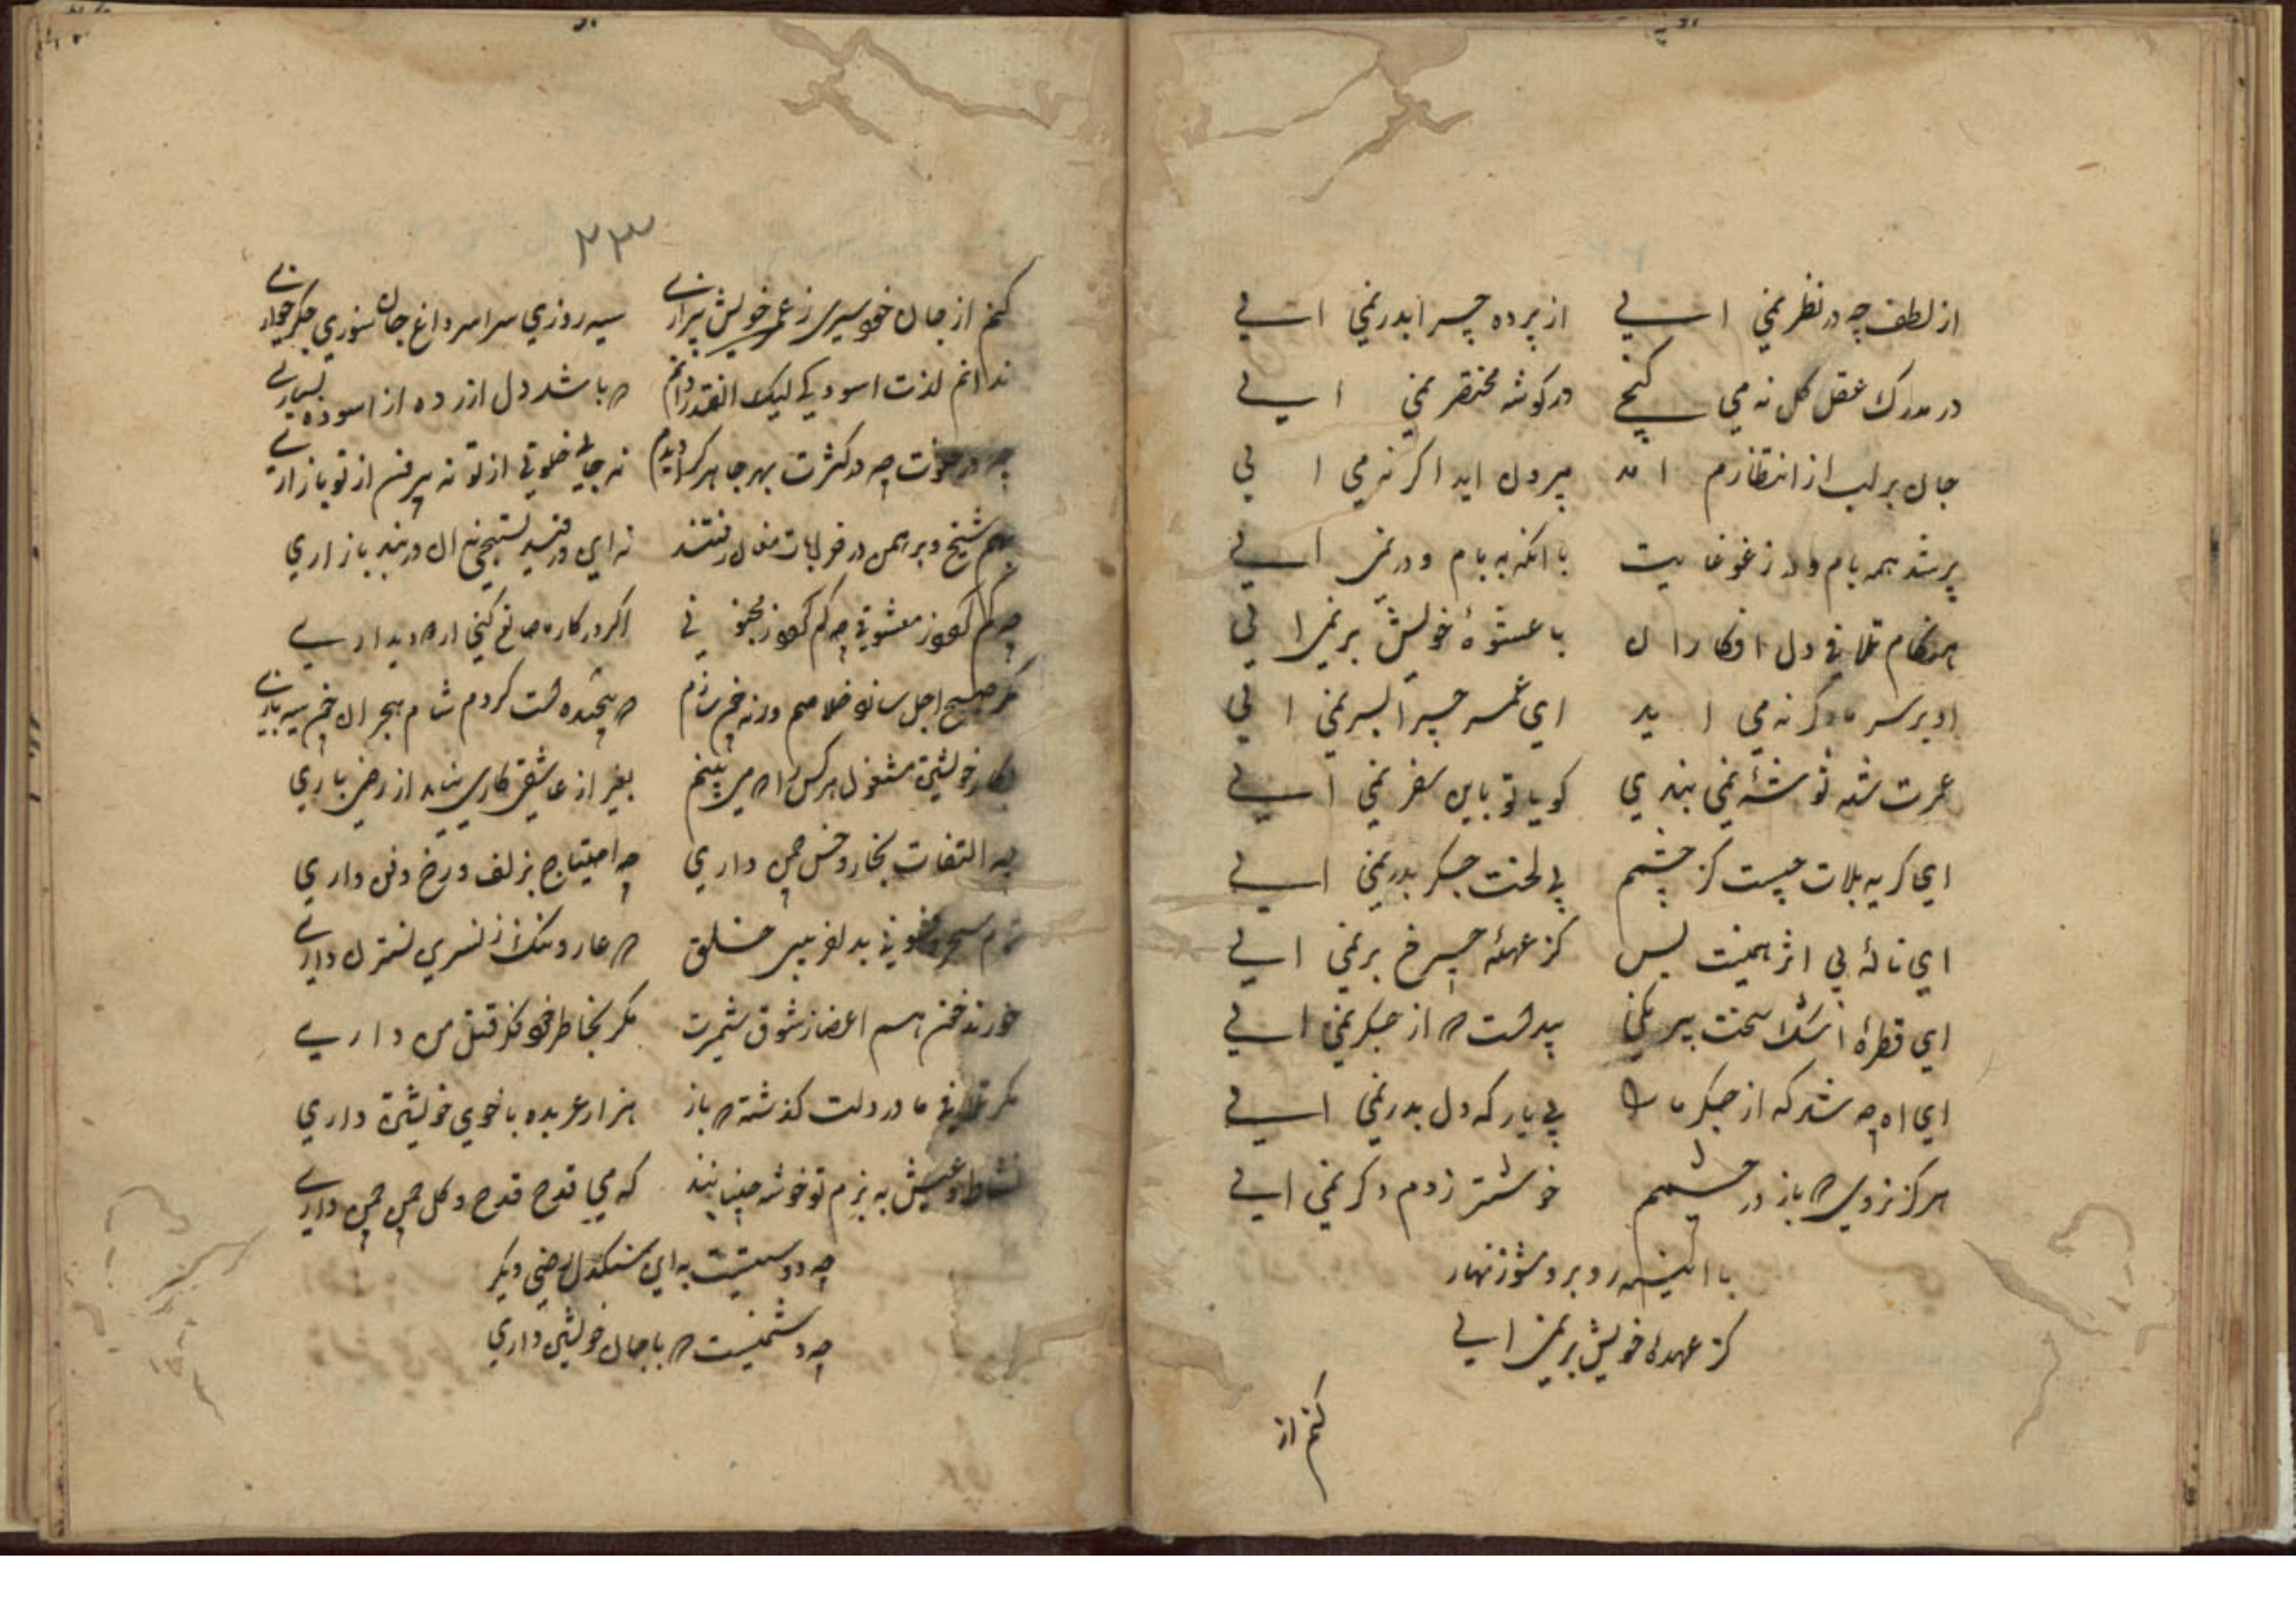 از لطف چه در نظر نمی ایی از پرده چرا بدر نمی ایی
در مدرك عقل کل نه می کنجی در کوشه مختصر نمی ایی
جان بر لب از انتظارم امد بر دل اید اکر نه می ایی
پر شد همه بام و در ز غوغایت با انکه به بام و در نمی ایی
هنکام تلافی دل افکاران با عشوهٔ خویش بر نمی ایی
او بر سر ما اکر نه می اید ای عمر چرا بسر نمی ایی
عمرت شد و توشهٔ نمی بندی کویا تو باین سفر نمی ایی
ای کریه بلات چیست کز چشمم بی لخت جکر بدر نمی ایی
ای نالهٔ بی اثر همینت بس کز عهدهٔ چرخ بر نمی ایی
ای قطرهٔ اشك سخت بیرنکی پیداست که از جکر نمی ایی
ای اه چه شد که از جکر مارا بی پارکه دل بدر نمی ایی
هرکز نزدی که باز در چشمم خوشتر ز دم دکر نمی ایی
با اینه روبرو مشو زنهار
کز عهدهٔ خویش بر نمی ایی
کنم از
۲۳
کنم از جان خود سیری ز عمر خویش بیزاری سیه روزی سراسر داغ جان سوزی جکر خواری
ندانم لذت اسودکی لیك انقدر دانم که باشد دل ازرده از اسوده بسیاری
چه در خلوت چه در کثرت بهر جا هر کرا دیدم نه جای خلوتی از تو نه بیرون از تو بازاری
بهم شیخ و برهمن در خرابات مغان رفتند نه این در قید تسبیحی نه ان در بند زناری
چه کم کردد ز معشوقی چه کم کردد ز محبوبی اکر در کار ما نع کنی از ما دیداری
مکر صبح اجل سازد خلاصم ورنه من سازم که پیچیده است کردم شام هجران چون سیه ماری
بکار خویشتن مشغول هر کس را که می بینم بغیر از عاشقی کاری نیاید از رضی باری
چه التفات بخار و خس چمن داری چه احتیاج بزلف و رخ و ذقن داری
تمام سحر و فسونی بدلفریبی خلق که عار و ننك ز نسرین و نسترن داری
خورند خون هم اعضا ز شوق شمشیرت مکر بخاطر خود فکر قتل من داری
مکر تلافی ما در دلت کذشته که باز هزار عربده با خوی خویشتن داری
نشاط و عیش به بزم تو خوشه چینانند که می قدح قدح و کل چمن چمن داری
چه دوستیست به این سنکدل رضی دیکر
چه دشمنیست که با جان خویشتن داری